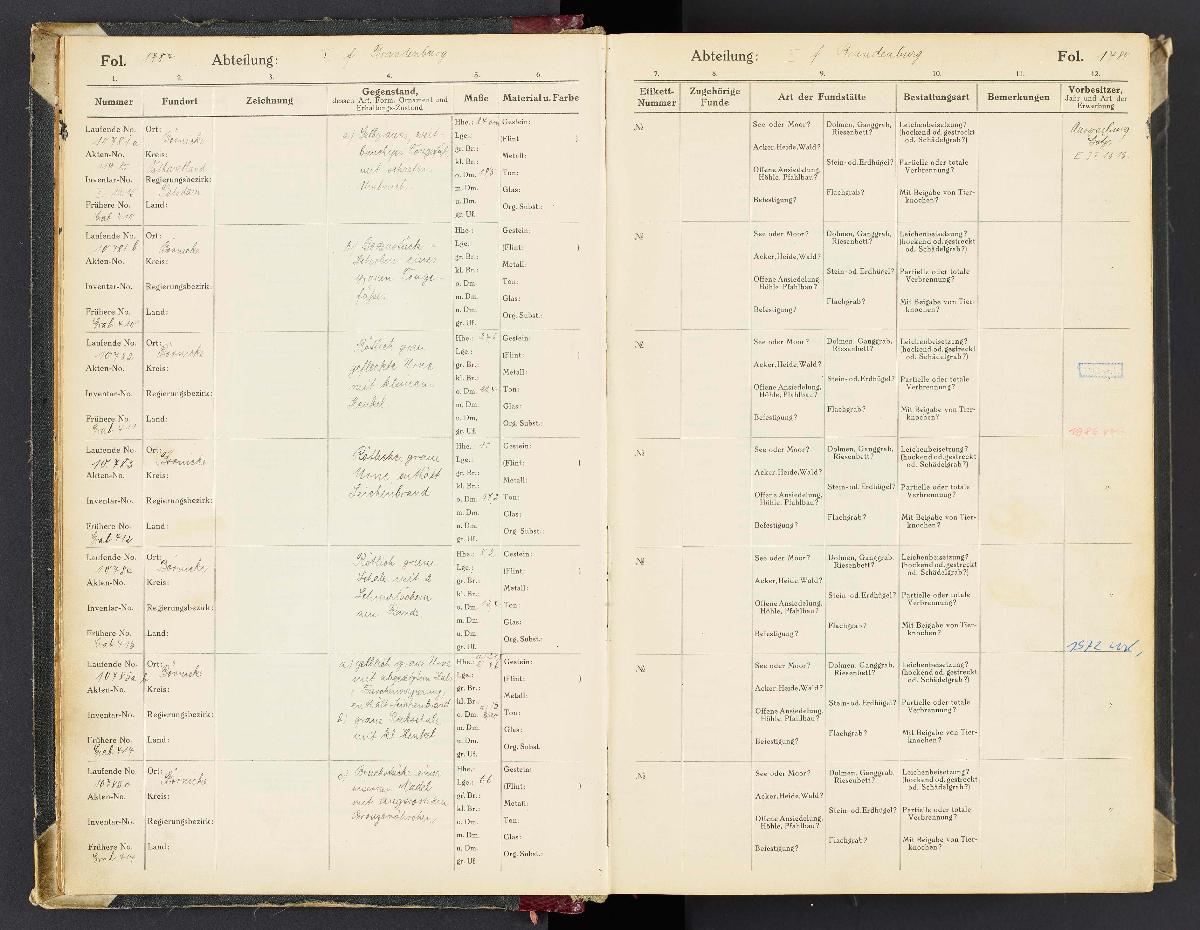 Fol. Abteilung: I f Brandenburg
1. 2. 3. 4. 5. 6.
Nummer Fundort Zeichnung Gegenstand, dessen Art, Form, Ornament und Erhaltungs-Zustand Maße Material u. Farbe
Laufende No. 10781a Ort: Börnicke
Akten-No. Kreis: Osthavelland
Inventar-No. Regierungsbezirk: Potsdam
Frühere No. Grab 410 Land:
a) Gelbraues weit-
bauchiges Tongefäß
mit
Hhe.: 14 cm Gestein:
Lge.: (Flint: )
gr. Br.:
kl. Br.: Metall:
o. Dm. 183 Ton:
m. Dm. Glas:
u. Dm.
gr. Uf. Org. Subst.:
Laufende No. 10781b Ort: Börnicke
Akten-No. Kreis:
Inventar-No. Regierungsbezirk:
Frühere No. Grab 410 Land:
b) Bodenstück
Scherben eines
grauen Tonge-
fäßes.
Hhe.: Gestein:
Lge. (Flint: )
gr. Br.:
kl. Br.: Metall:
o. Dm. Ton:
m. Dm. Glas:
u. Dm.
gr. Uf. Org. Subst.:
Laufende No. 10782 Ort: Börnicke
Akten-No. Kreis:
Inventar-No. Regierungsbezirk:
Frühere No. Grab 411 Land:
Rötlich grau
gefleckte Urne
mit kleinem
Henkel.
Hhe.: Gestein:
Lge.: (Flint: )
gr. Br.:
kl. Br.: Metall:
o. Dm. Ton:
m. Dm. Glas:
u. Dm.
gr. Uf. Org. Subst.:
Laufende No. 10783 Ort: Börnicke
Akten-No. Kreis:
Inventar-No. Regierungsbezirk:
Frühere No. Grab 412 Land:
Rötliche graue
Urne enthält
Leichenbrand
Hhe. 15 Gestein:
Lge.: (Flint: )
gr. Br.:
kl. Br.: Metall:
o. Dm. 172 Ton:
m. Dm. Glas:
u. Dm.
gr. Uf. Org. Subst.:
Laufende No. 10784 Ort: Börnicke
Akten-No. Kreis:
Inventar-No. Regierungsbezirk:
Frühere No. Grab 413 Land:
Rötlich graue
Schale mit 2
Schnurlöchern
am Rande.
Hhe.: 82 Gestein:
Lge.: (Flint: )
gr. Br.:
kl. Br.: Metall:
o. Dm. Ton:
m. Dm. Glas:
u. Dm.
gr. Uf. Org. Subst.:
Laufende No. 10785a b Ort: Börnicke
Akten-No. Kreis:
Inventar-No. Regierungsbezirk:
Frühere No. Grab 414 Land:
a) gelblich graue Urne
mit abgesetztem Hals
u. Furchenverzierung,
enthält Leichenbrand
b) graue Deckschale
mit Henkel
Hhe.: Gestein:
Lge.: (Flint: )
gr. Br.:
kl. Br.: Metall:
o. Dm. Ton:
m. Dm. Glas:
u. Dm.
gr. Uf. Org. Subst.
Laufende No. 10785c Ort: Börnicke
Akten-No. Kreis:
Inventar-No. Regierungsbezirk:
Frühere No. Grab 414 Land:
c) Bruchstück einer
eisernen Nadel
mit angerostetem
Bronzeröhrchen.
Hhe. Gestein:
Lge.: 66 (Flint: )
gr. Br.:
kl. Br.: Metall:
o. Dm. Ton:
m. Dm. Glas:
u. Dm.
gr. Uf. Org. Subst.:
Abteilung: I f Brandenburg Fol.
7. 8. 9. 10. 11. 12.
Etikett-Nummer Zugehörige Funde Art der Fundstätte Bestattungsart Bemerkungen Vorbesitzer, Jahr und Art der Erwerbung
№ See oder Moor? Dolmen, Ganggrab, Riesenbett? Leichenbeisetzung? (hockend od. gestreckt od. Schädelgrab?)
Acker, Heide, Wald?
Offene Ansiedelung, Höhle, Pfahlbau? Stein- od. Erdhügel? Partielle oder totale Verbrennung?
Befestigung? Flachgrab? Mit Beigabe von Tierknochen?
Ausgrabung
№ See oder Moor? Dolmen, Ganggrab, Riesenbett? Leichenbeisetzung? (hockend od. gestreckt od. Schädelgrab?)
Acker, Heide, Wald?
Offene Ansiedelung, Höhle, Pfahlbau? Stein- od. Erdhügel? Partielle oder totale Verbrennung?
Befestigung? Flachgrab? Mit Beigabe von Tierknochen?
№ See oder Moor? Dolmen, Ganggrab, Riesenbett? Leichenbeisetzung? (hockend od. gestreckt od. Schädelgrab?)
Acker, Heide, Wald?
Offene Ansiedelung, Höhle, Pfahlbau? Stein- od. Erdhügel? Partielle oder totale Verbrennung?
Befestigung? Flachgrab? Mit Beigabe von Tierknochen?
1986
№ See oder Moor? Dolmen, Ganggrab, Riesenbett? Leichenbeisetzung? (hockend od. gestreckt od. Schädelgrab?)
Acker, Heide, Wald?
Offene Ansiedelung, Höhle, Pfahlbau? Stein- od. Erdhügel? Partielle oder totale Verbrennung?
Befestigung? Flachgrab? Mit Beigabe von Tierknochen?
"
№ See oder Moor? Dolmen, Ganggrab, Riesenbett? Leichenbeisetzung? (hockend od. gestreckt od. Schädelgrab?)
Acker, Heide, Wald?
Offene Ansiedelung, Höhle, Pfahlbau? Stein- od. Erdhügel? Partielle oder totale Verbrennung?
Befestigung? Flachgrab? Mit Beigabe von Tierknochen?
"
1972
№ See oder Moor? Dolmen, Ganggrab, Riesenbett? Leichenbeisetzung? (hockend od. gestreckt od. Schädelgrab?)
Acker, Heide, Wald?
Offene Ansiedelung, Höhle, Pfahlbau? Stein- od. Erdhügel? Partielle oder totale Verbrennung?
Befestigung? Flachgrab? Mit Beigabe von Tierknochen?
"
№ See oder Moor? Dolmen, Ganggrab, Riesenbett? Leichenbeisetzung? (hockend od. gestreckt od. Schädelgrab?)
Acker, Heide, Wald?
Offene Ansiedelung, Höhle, Pfahlbau? Stein- od. Erdhügel? Partielle oder totale Verbrennung?
Befestigung? Flachgrab? Mit Beigabe von Tierknochen?
"